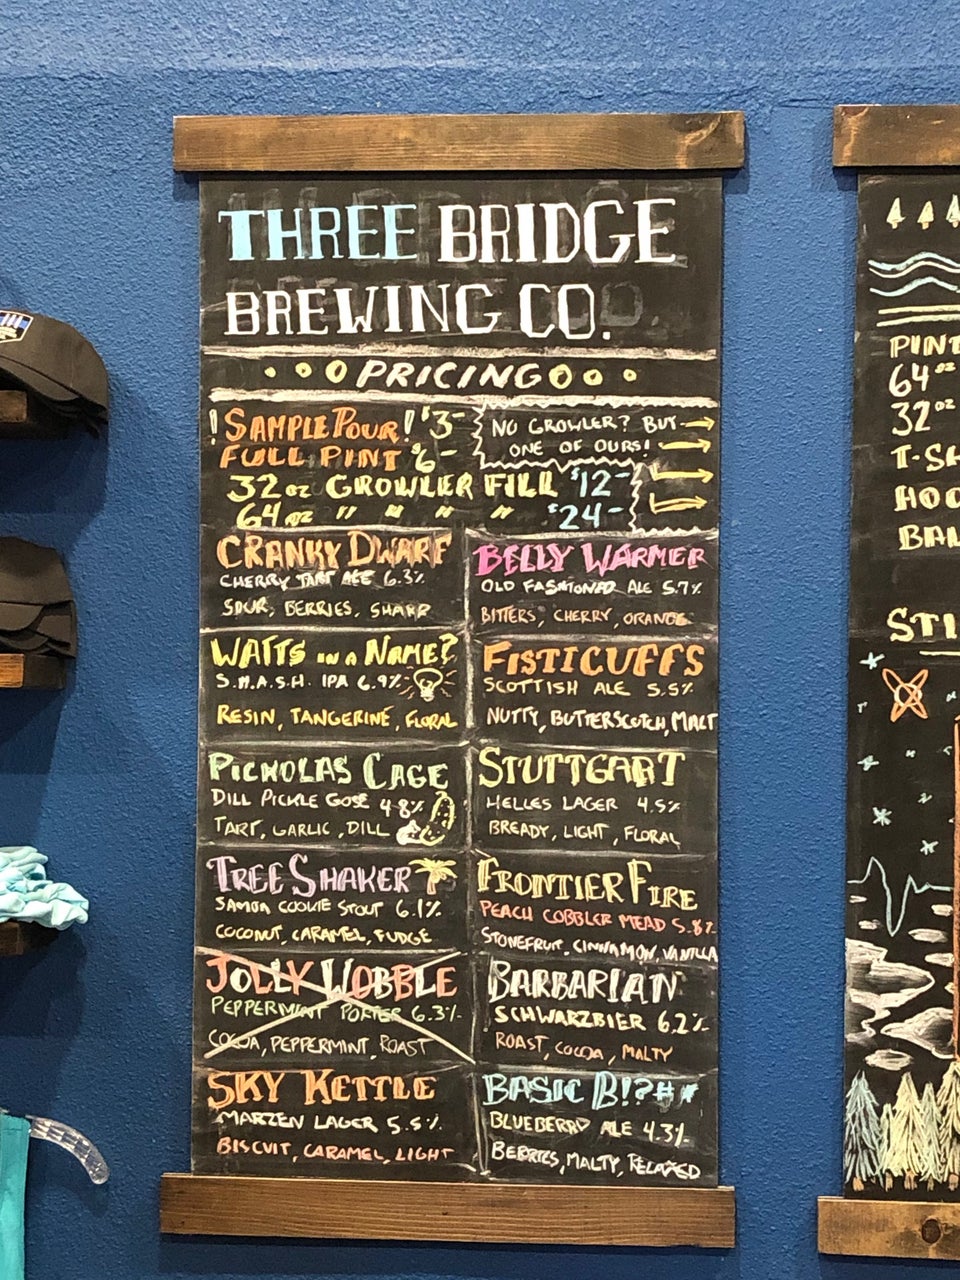 THREE BRIDGE
BREWING CO.
PRICING
! SAMPLE POUR! $3-
FULL PINT $6-
NO GROWLER? BUY
ONE OF OURS!
32 oz GROWLER FILL $12-
64 oz " " " " $24-
CRANKY DWARF
CHERRY TART ALE 6.3%
SOUR, BERRIES, SHARP
BELLY WARMER
OLD FASHIONED ALE 5.7%
BITTERS, CHERRY, ORANGE
WATTS IN A NAME?
S.M.A.S.H. IPA 6.9%
RESIN, TANGERINE, FLORAL
FISTICUFFS
SCOTTISH ALE 5.5%
NUTTY, BUTTERSCOTCH, MALT
PICKOLAS CAGE
DILL PICKLE GOSE 4.8%
TART, GARLIC, DILL
STUTTGART
HELLES LAGER 4.5%
BREADY, LIGHT, FLORAL
TREE SHAKER
SAMOA COOKIE STOUT 6.1%
COCONUT, CARAMEL, FUDGE
FRONTIER FIRE
PEACH COBBLER MEAD 5.8%
STONEFRUIT, CINNAMON, VANILLA
JOLLY WOBBLE
PEPPERMINT PORTER 6.3%
COCOA, PEPPERMINT, ROAST
BARBARIAN
SCHWARZBIER 6.2%
ROAST, COCOA, MALTY
SKY KETTLE
MARZEN LAGER 5.5%
BISCUIT, CARAMEL, LIGHT
BASIC B!?##
BLUEBERRY ALE 4.3%
BERRIES, MALTY, RELAXED
PINT
64 oz
32 oz
T-SH
HOO
BAL
STI